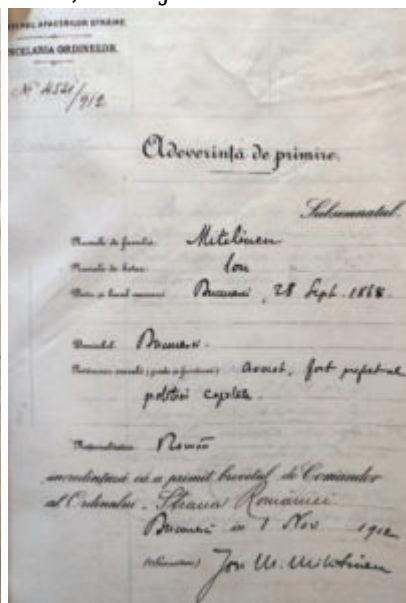 AFACERILOR STRĂINE
CANCELARIA ORDINELOR.
Nº 4521/912
Adeverință de primire.
Subsemnatul
Numele de familie Mitilineu
Numele de botez Ion
Data și locul nașterei București, 28 Sept. 1868.
Domiciliul București.
avocat, fost prefect al
poliției capitalei.
Naționalitatea Român
încredințează că a primit brevetul de Comandor
al Ordinului „Steaua României
București în 1 Nov 1912
Ion M. Mitilineu